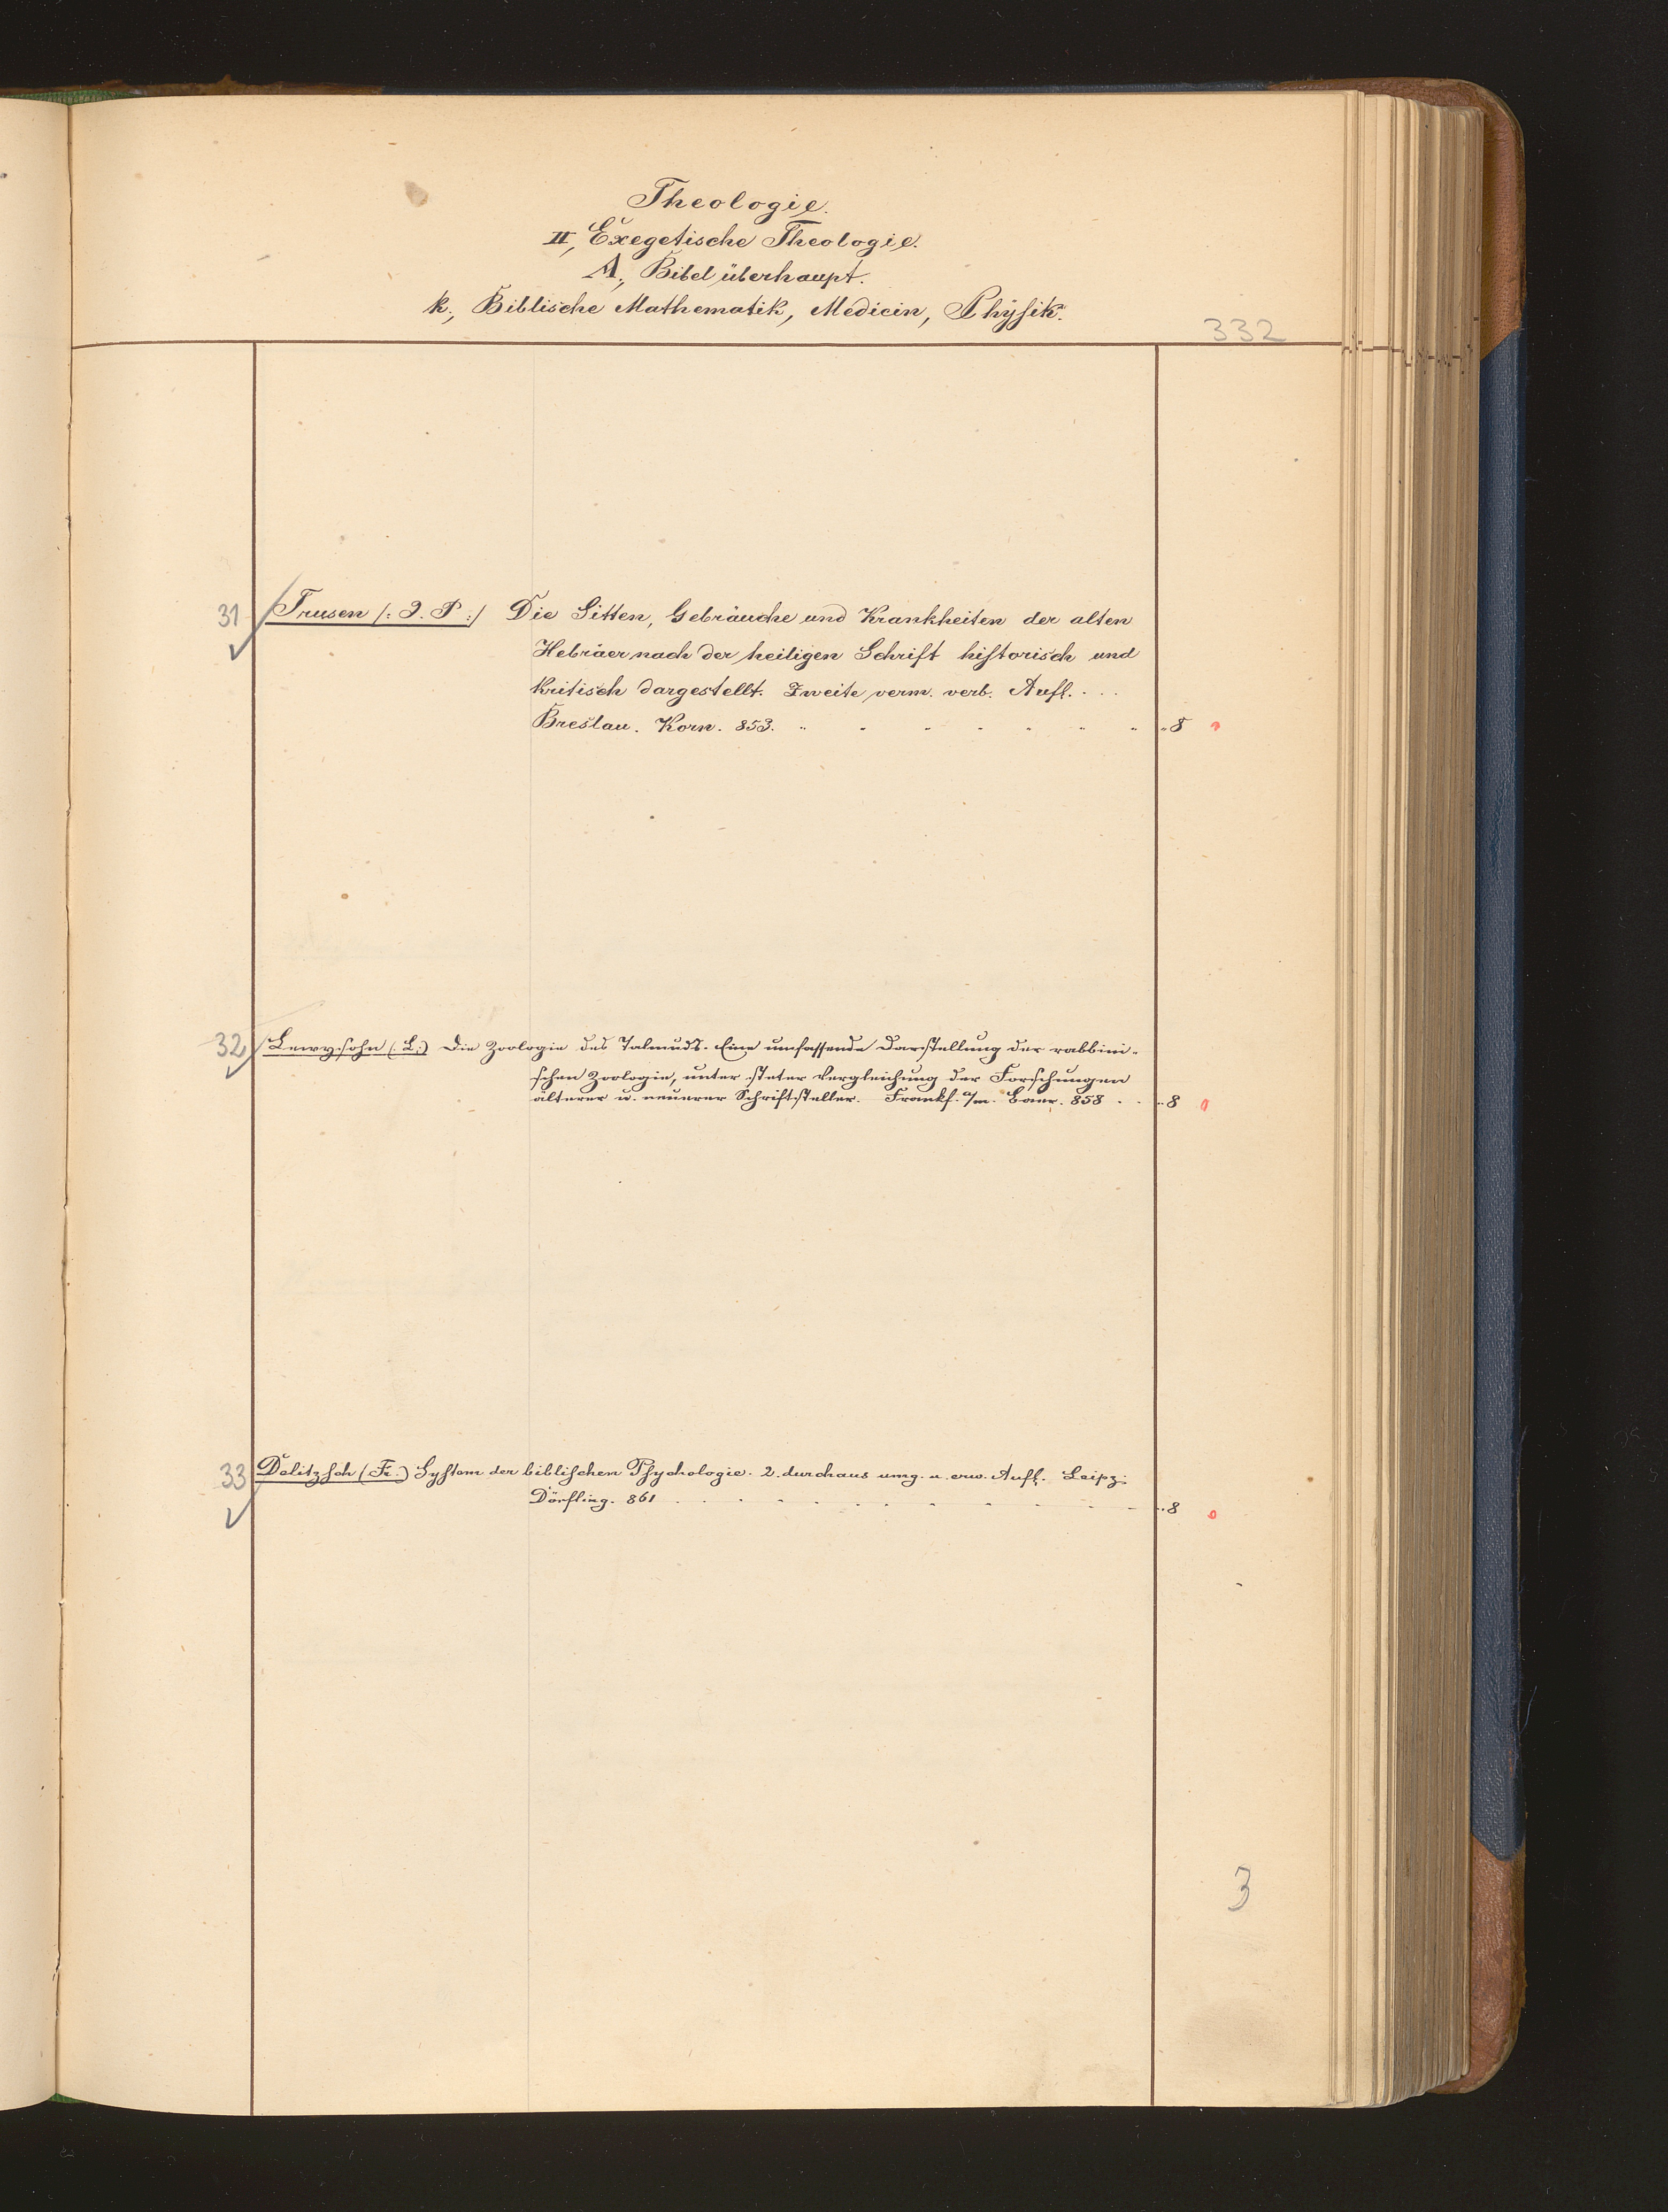 Theologie.
II, Exegetische Theologie.
A., Bibel überhaupt.
k., Biblische Mathematik, Medicin, Physik.
332
31 Trusen /: J. P :/ Die Sitten, Gebräuche und Krankheiten der alten
Hebräer nach der heiligen Schrift historisch und
kritisch dargestellt. Zweite verm. verb. Aufl. . . .
Breslau. Korn. 853. " " " " " " " " 8
32 Lewysohn (: L :) Die Zoologie des Talmuds. Eine umfassende Darstellung der rabbini-
schen Zoologie, unter steter Vergleichung der Forschungen
älterer u. neuerer Schriftsteller. Frankf. a/m. Baer. 858 . . " 8
33 Delitzsch (Fr.) System der biblischen Psychologie. 2. durchaus umg. u. erw. Aufl. Leipz.
Dörfling. 861 . . . . . . . . . . . . 8
3